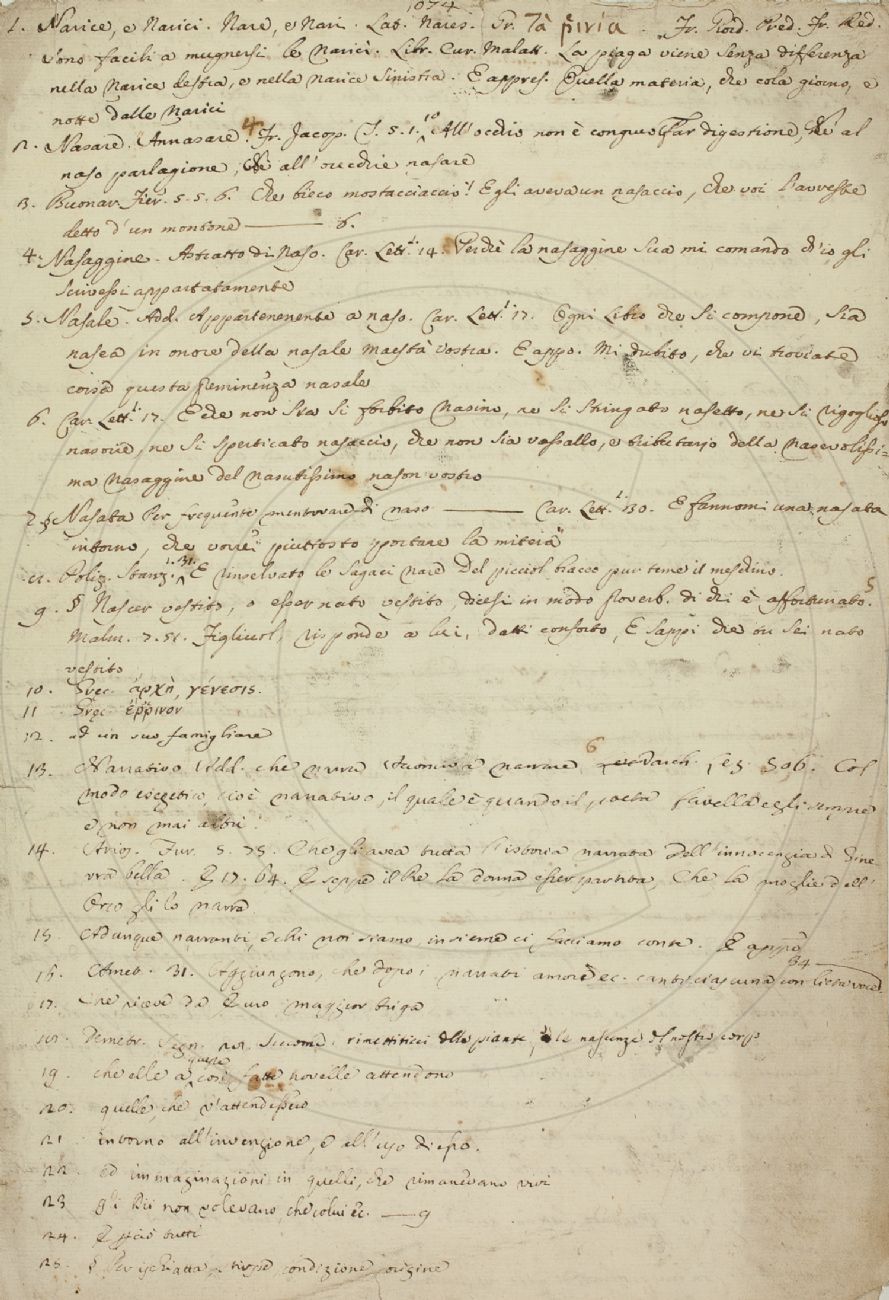 1074
1. Narice, e Narici. Nare, e Nari. Lat. Nares. Gr. Fr. Giord. Pred. Fr. Red.
sono facili a mugnersi le Narici. Libr. Cur. Malatt. La piaga viene senza differenza
nella Narice destra, e nella Narice sinistra. E appres. Quella materia, che cola giorno, e
notte dalle Narici
2. Nasare. Annasare. 4 Fr. Jacop. T. 5. 1. 10 All' occhio non è congruo Far digestione, Nè al
naso parlagione, Nè all' orecchie nasare
3. Buonar. Fier. 5. 5. 6. Che bieco mostacciaccio! Egli aveva un nasaccio, che voi l'avreste
detto d'un montone ——— 6.
4. Nasaggine. Astratto di Naso. Car. Lett. 1. 14. Perchè la nasaggine sua mi comandò ch'io gli
scrivessi appartatamente
5. Nasale. Add. Appartenenente a naso. Car. Lett. 1. 17. Ogni Libro che si compone, sia
nasca in onore della nasale maestà vostra. E appo. Mi dubito, che vi troviate
costà questa preminenza nasale
6. Car. Lett. 1. 17. E che non sia sì forbito Nasino, ne sì stringato nasetto, ne sì rigoglioso
nasone, ne sì sperticato nasaccio, che non sia vassallo, e tributario della Nasevolissi=
ma Nasaggine del Nasutissimo nason vostro
7 § Nasata Per frequente mentovare di naso ——— Car. Lett. 1. 130. E fannomi una nasata
intorno, che vorrei piuttosto portare la mitera
8. Poliz. Stanz. 1. 31. E rinselvato le sagaci nare Del picciol bracco pur teme il meschino.
9. § Nascer vestito, o esser nato vestito, dicesi in modo proverb. di chi è affortunato. 5
Malm. 7. 51. Figliuol, risponde a lui, datti conforto, E sappi che tu sei nato
vestito
10. Grec. ἀρχὴ, γένεσις.
11. Grec. ἔῤῥινον
12. ad un suo famigliare
13. Narrativo Add. che narra Acconcio a narrare 6 Varch. Lez. 506. Col
modo esegetico, cioè narrativo, il quale è quando il poeta favella egli sempre
e non mai altri
14. Arios. Fur. 5. 75. Che gli avea tutta l'istoria narrata Dell'innocenzia di Gine-
vra bella. E 17. 64. E seppe il Re la donna esser partita, Che la moglie dell'
Orco gli lo narrà
15. Adunque narranti, e chi noi siamo, insieme ci facciamo conte. E appo
34 ———
16. Amet. 31. Aggiungono, che dopo i narrati amori ec. canti ciascuna con lieta voce
17. Che riceve da Euro maggior briga
18. Demetr. Segn. 28. Siccome rimettiticci delle piante, e le nascenze del nostro corpo
19. che elle a queste così fatte novelle attendono
20. quelle, che v'attendessero
21. intorno all'invenzione, e all'uso di esso.
22. ed immaginazioni in quelli, che rimanevano vivi
23. gli Dii non volevano, che colui ec. ——— 9
24. E perciò tutti
25. § Per ischiatta, stirpe, condizione, origine